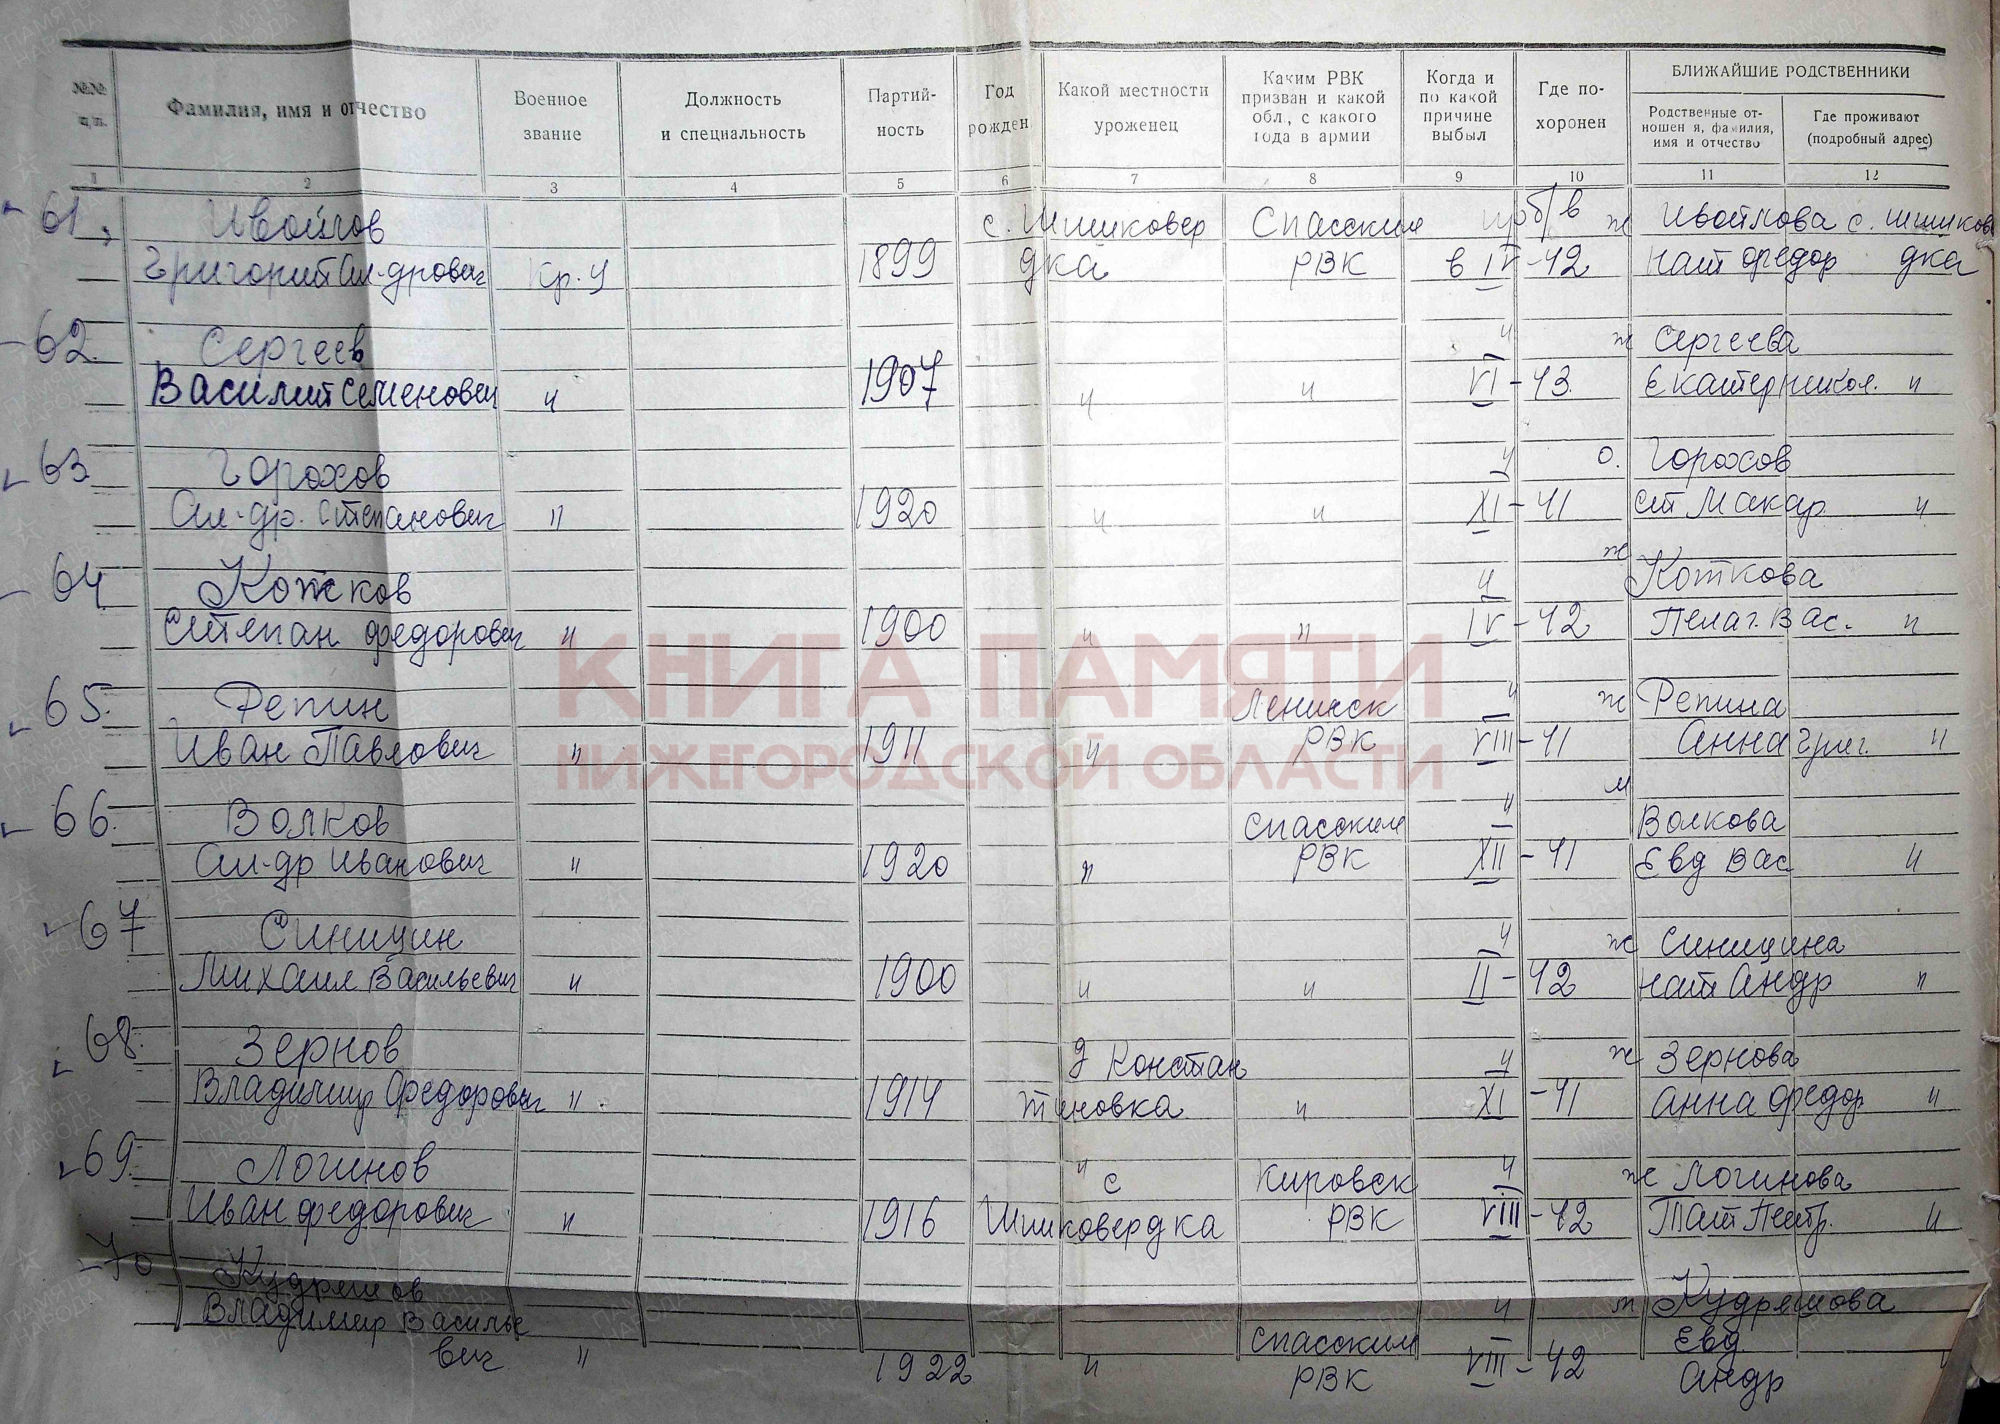 №№ п/п.
Фамилия, имя и отчество
Военное звание
Должность и специальность
Партий- ность
Год рожден
Какой местности уроженец
Каким РВК призван и какой обл., с какого года в армии
Когда и по какой причине выбыл
Где по- хоронен
БЛИЖАЙШИЕ РОДСТВЕННИКИ
Родственные от- ношен я, фамилия, имя и отчество
Где проживают (подробный адрес)
1 2 3 4 5 6 7 8 9 10 11 12
61. Ивойлов с. Шишковер Спасским пр б/в ж Ивойлова с. Шишков
Григорий Ал-дрович Кр. У 1899 дка РВК в IV-42 Нат Федор дка
62. Сергеев " ж Сергеева
Василий Семенович " 1907 " " VI-43. Екатер Никол. "
63 Горохов " о. Горохов
Ал-др. Степанович " 1920 " " XI-41 Ст Макар "
64 Котков " ж Коткова
Степан Федорович " 1900 " " IV-42 Пелаг. Вас. "
65. Репин Ленинск " ж Репина
Иван Павлович " 1911 " РВК VIII-41 Анна Григ. "
66. Волков Спасским " м Волкова
Ал-др Иванович " 1920 " РВК XII-41 Евд Вас "
67 Синицин " ж Синицина
Михаил Васильевич " 1900 " " II-42 Нат Андр "
68. Зернов д Констан " ж Зернова
Владимир Федорович " 1914 тиновка " XI-41 Анна Федор "
69. Логинов " с Кировск " ж Логинова
Иван Федорович " 1916 Шишковердка РВК VIII-42 Тат Петр. "
70 Кудряшов " м Кудряшова
Владимир Василье Спасским Евд.
вич " 1922 " РВК VIII-42 Андр "
КНИГА ПАМЯТИ
НИЖЕГОРОДСКОЙ ОБЛАСТИ
ПАМЯТЬ НАРОДА